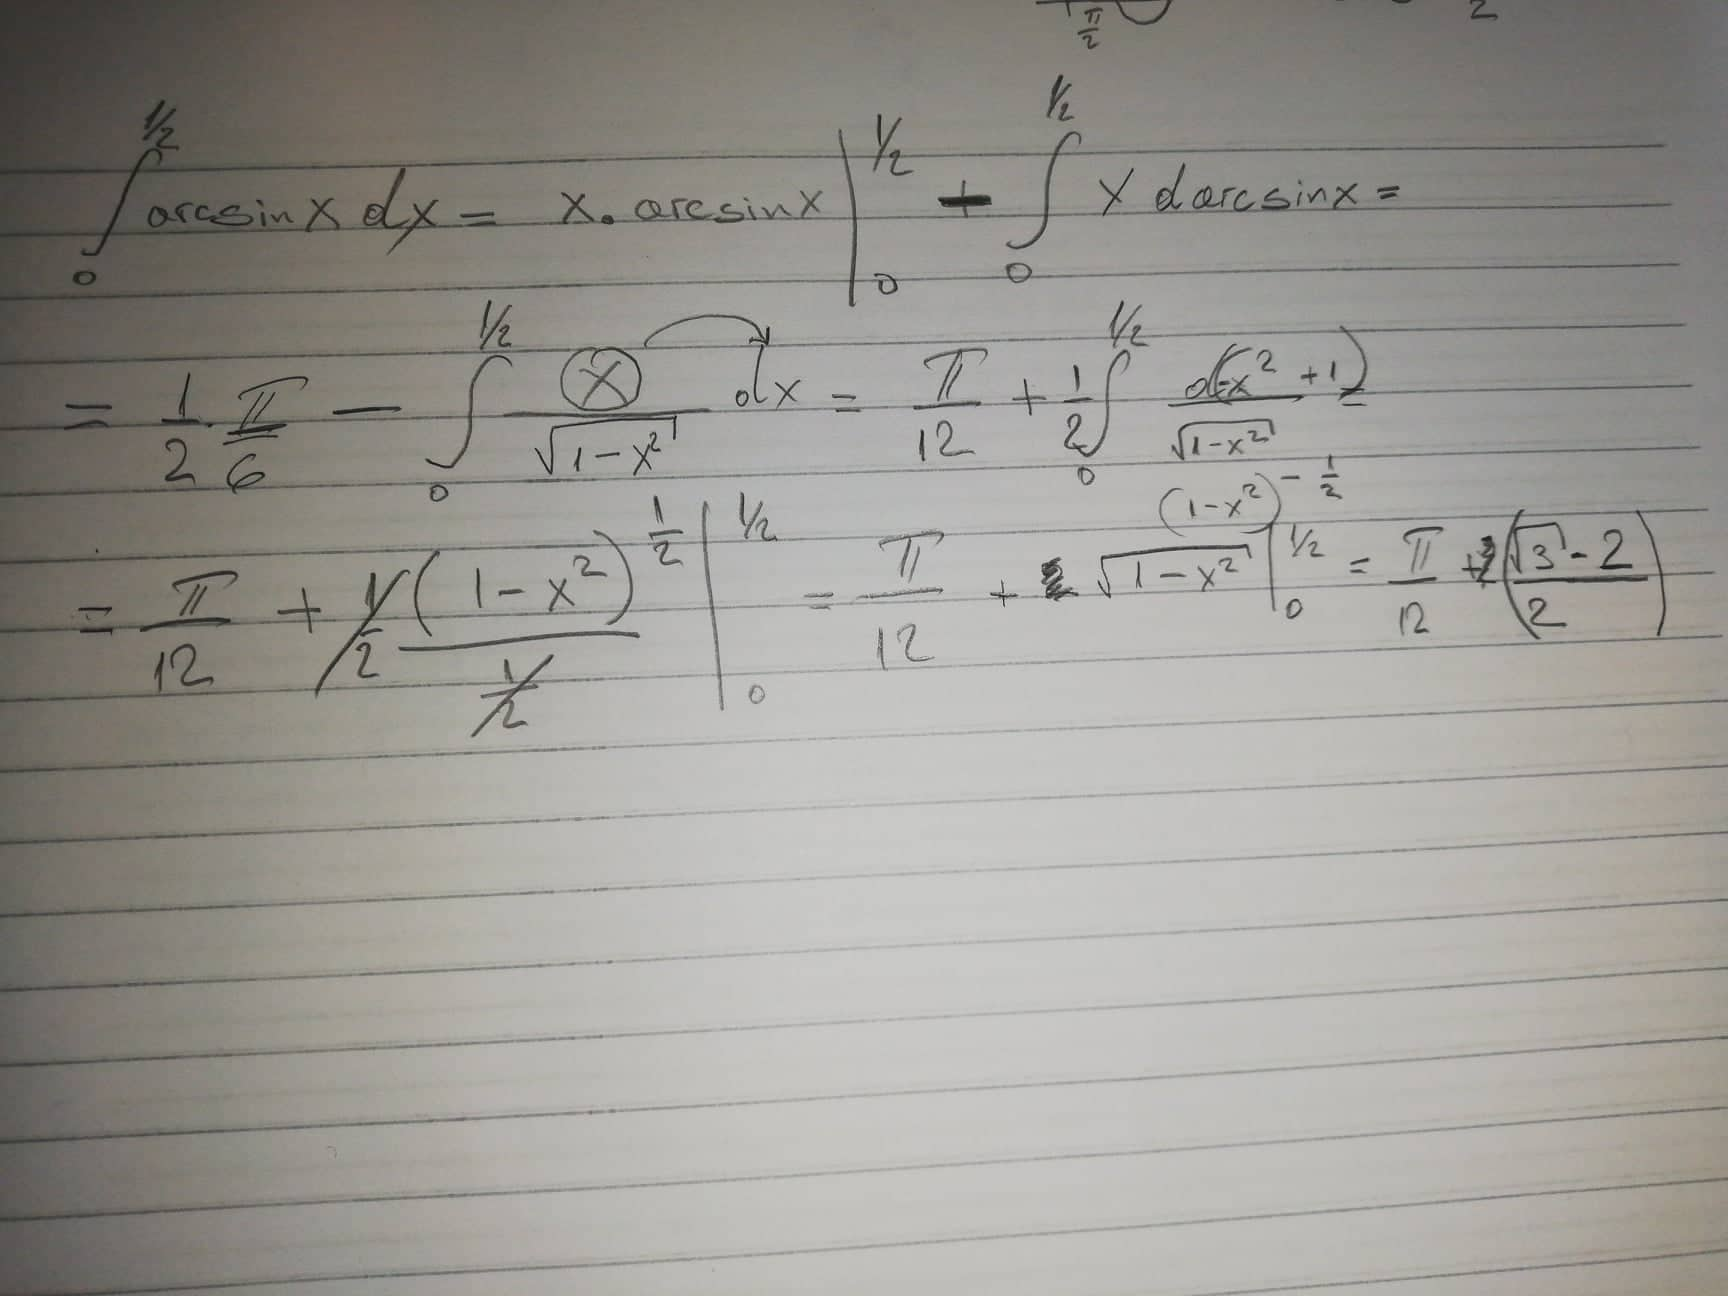 π/2 2
∫₀^{1/2} arcsin x dx = x. arcsin x |₀^{1/2} + ∫₀^{1/2} x d arcsin x =
= 1/2 . π/6 − ∫₀^{1/2} x/√(1−x²) dx = π/12 + 1/2 ∫₀^{1/2} d(−x² + 1)/√(1−x²) =
(1−x²)^{−1/2}
= π/12 + 1/2 (1−x²)^{1/2}/(1/2) |₀^{1/2} = π/12 + √(1−x²) |₀^{1/2} = π/12 + (√3 − 2 / 2)